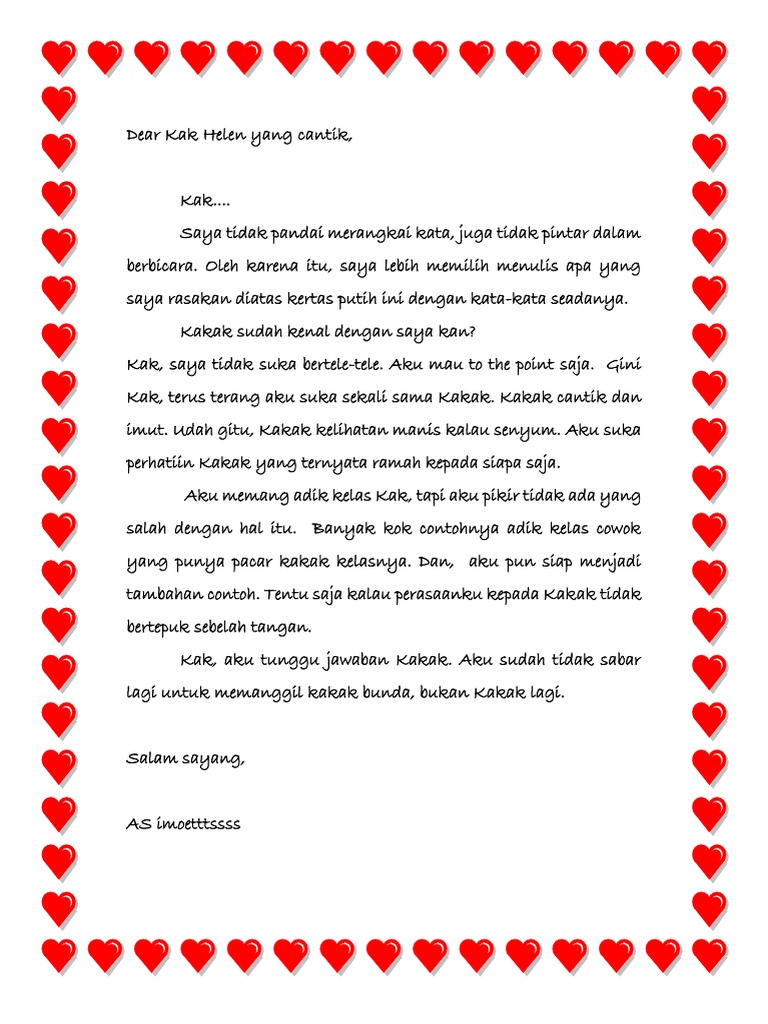 Dear Kak Helen yang cantik,
Kak....
Saya tidak pandai merangkai kata, juga tidak pintar dalam
berbicara. Oleh karena itu, saya lebih memilih menulis apa yang
saya rasakan diatas kertas putih ini dengan kata-kata seadanya.
Kakak sudah kenal dengan saya kan?
Kak, saya tidak suka bertele-tele. Aku mau to the point saja. Gini
Kak, terus terang aku suka sekali sama Kakak. Kakak cantik dan
imut. Udah gitu, Kakak kelihatan manis kalau senyum. Aku suka
perhatiin Kakak yang ternyata ramah kepada siapa saja.
Aku memang adik kelas Kak, tapi aku pikir tidak ada yang
salah dengan hal itu. Banyak kok contohnya adik kelas cowok
yang punya pacar kakak kelasnya. Dan, aku pun siap menjadi
tambahan contoh. Tentu saja kalau perasaanku kepada Kakak tidak
bertepuk sebelah tangan.
Kak, aku tunggu jawaban Kakak. Aku sudah tidak sabar
lagi untuk memanggil kakak bunda, bukan Kakak lagi.
Salam sayang,
AS imoetttssss